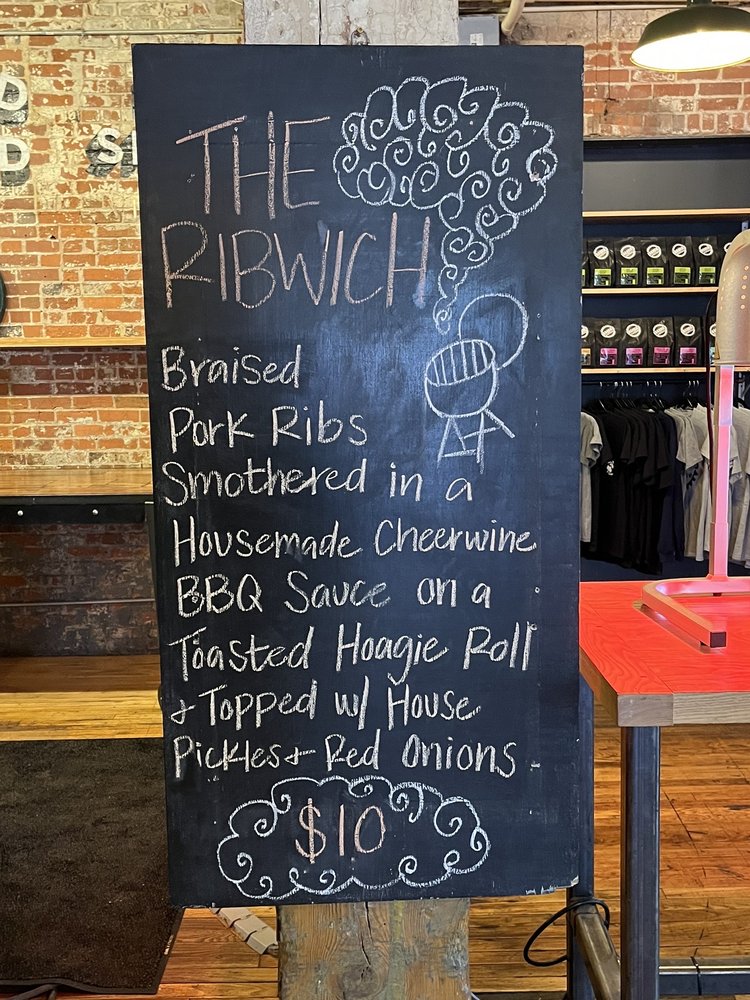 THE
RIBWICH
Braised
Pork Ribs
Smothered in a
Housemade Cheerwine
BBQ Sauce on a
Toasted Hoagie Roll
+ Topped w/ House
Pickles + Red Onions
$10